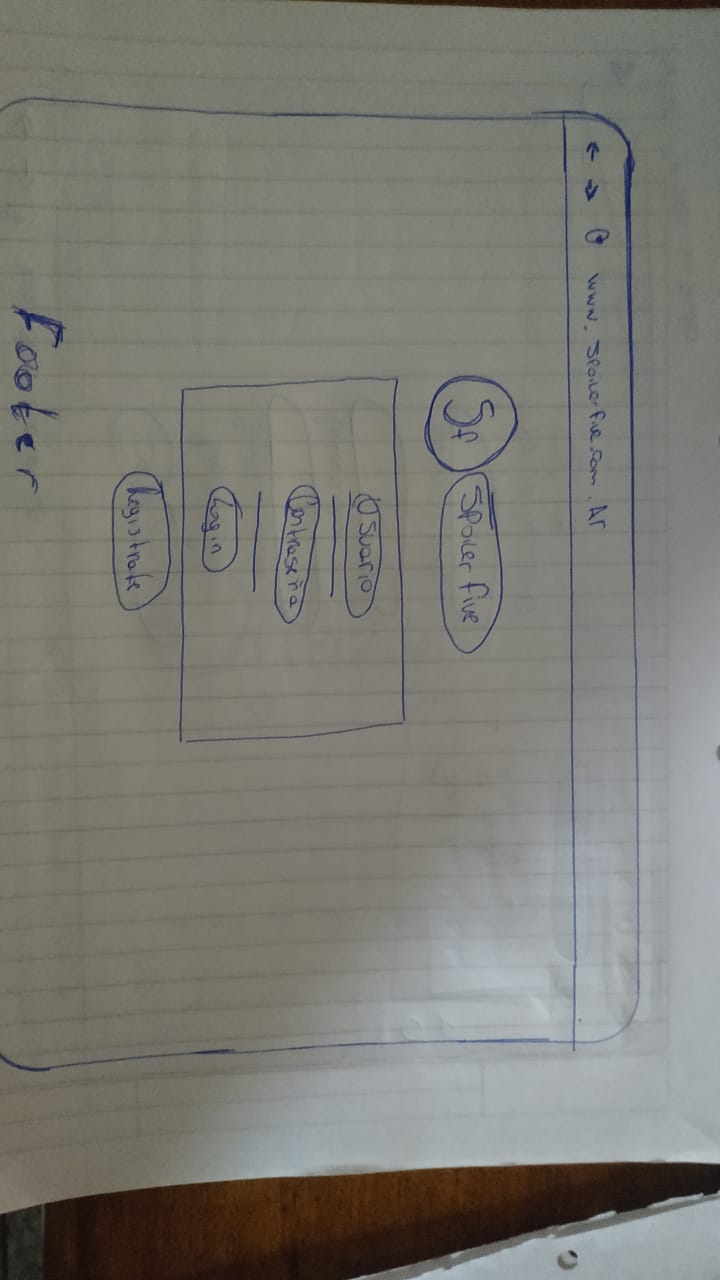 www.spoilerfive.com.Ar
Sf
Spoiler five
Usuario
Contraseña
Login
Registrate
Footer